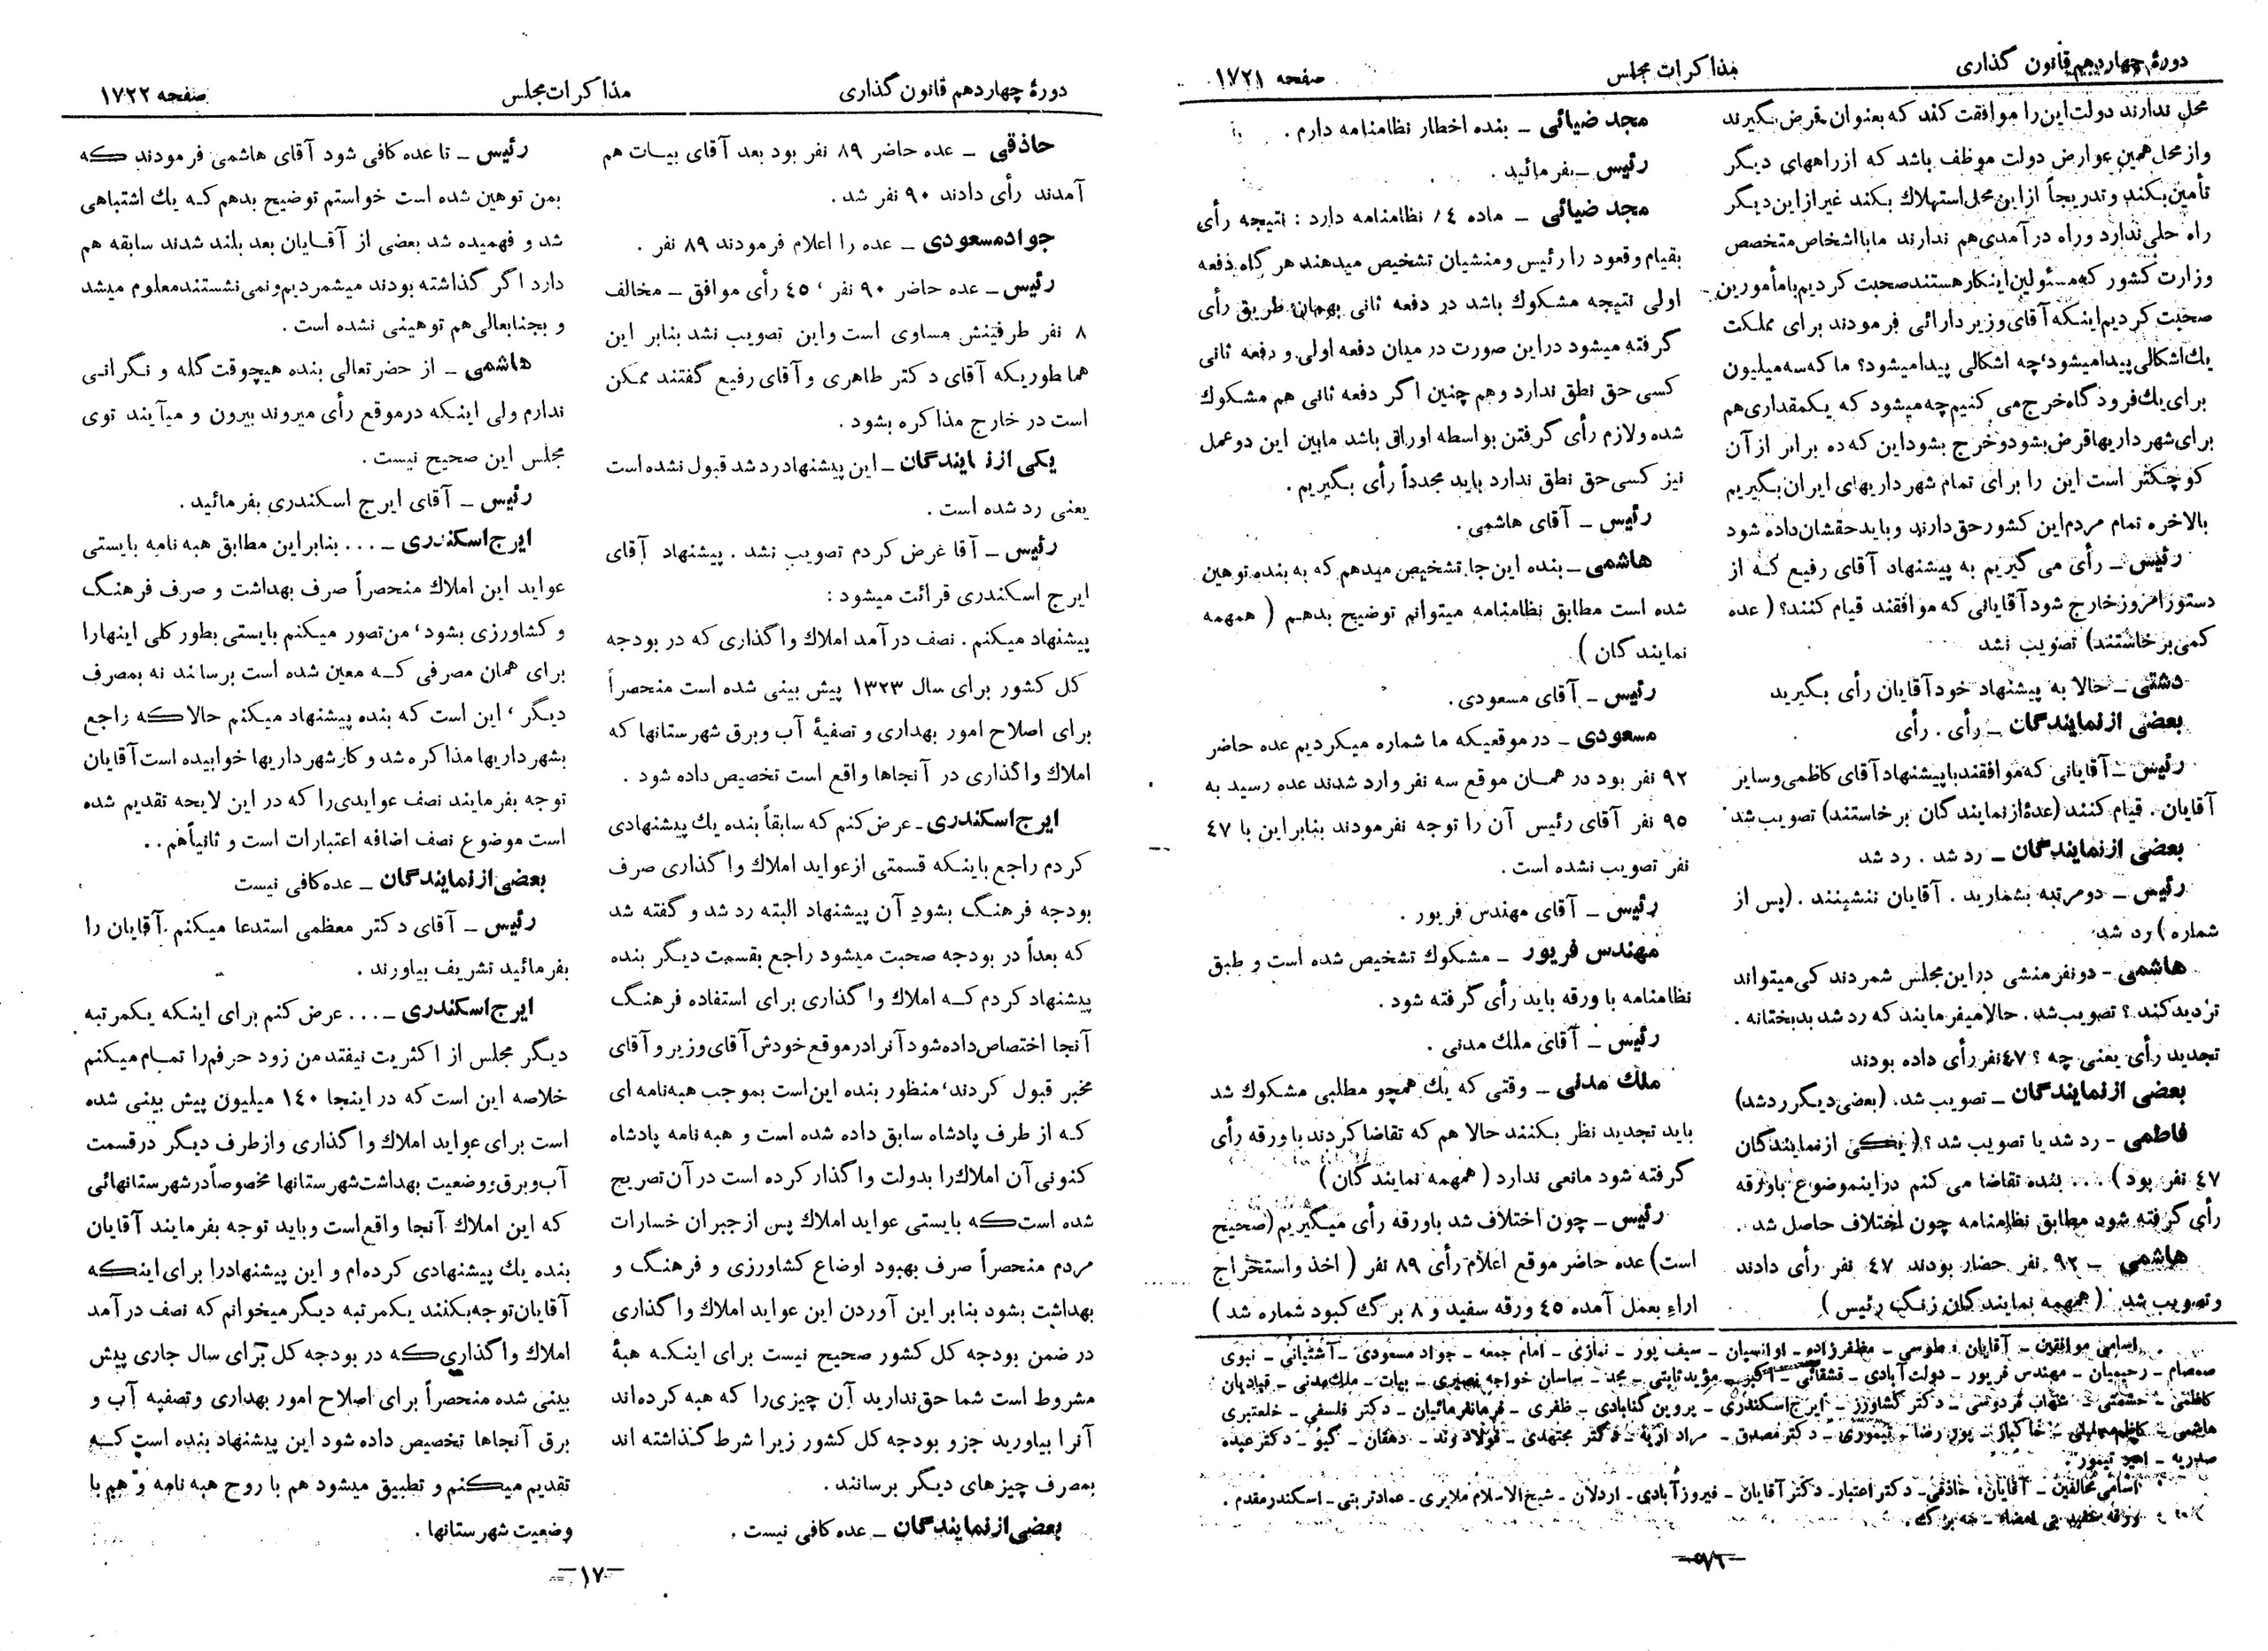 دورهٔ چهاردهم قانون گذاری
مذاکرات مجلس
صفحه ۱۷۲۱
محل ندارند دولت این را موافقت کند که بعنوان قرض بگیرند
واز محل همین عوارض دولت موظف باشد که از راههای دیگر
تأمین بکند وتدریجاً از این محل استهلاك بکند غیر از این دیگر
راه حلی ندارد وراه درآمدی هم ندارند ما با اشخاص متخصص
وزارت کشور که مسئولین اینکار هستند صحبت کردیم با مأمورین
صحبت کردیم اینکه آقای وزیر دارائی فرمودند برای مملکت
یك اشکالی پیدا میشود، چه اشکالی پیدا میشود؟ ما که سه میلیون
برای یك فرودگاه خرج می کنیم چه میشود که یکمقداری هم
برای شهرداریها قرض بشود و خرج بشود این که ده برابر از آن
کوچکتر است این را برای تمام شهرداریهای ایران بگیریم
بالاخره تمام مردم این کشور حق دارند و باید حقشان داده شود
رئیس ـ رأی می گیریم به پیشنهاد آقای رفیع که از
دستور امروز خارج شود آقایانی که موافقند قیام کنند؟ ( عده
کمی برخاستند) تصویب نشد
دشتی ـ حالا به پیشنهاد خود آقایان رأی بگیرید
بعضی از نمایندگان ـ رأی . رأی
رئیس ـ آقایانی که موافقند با پیشنهاد آقای کاظمی وسایر
آقایان . قیام کنند (عدهٔ از نمایندگان برخاستند) تصویب شد
بعضی از نمایندگان ـ رد شد . رد شد
رئیس ـ دومرتبه بشمارید . آقایان ننشینند . (پس از
شماره ) رد شد
هاشمی ـ دونفر منشی در این مجلس شمردند کی میتواند
تردید کند ؟ تصویب شد . حالا میفرمایند که رد شد بدبختانه .
تجدید رأی یعنی چه ؟ ٤۷ نفر رأی داده بودند
بعضی از نمایندگان ـ تصویب شد. (بعضی دیگر رد شد)
فاطمی ـ رد شد یا تصویب شد ؟ ( یکی از نمایندگان
٤۷ نفر بود ) ... بنده تقاضا می کنم در اینموضوع با ورقه
رأی گرفته شود مطابق نظامنامه چون اختلاف حاصل شد .
هاشمی ـ ۹۲ نفر حضار بودند ٤۷ نفر رأی دادند
و تصویب شد ( همهمه نمایندگان زنگ رئیس )
مجد ضیائی ـ بنده اخطار نظامنامه دارم .
رئیس ـ بفرمائید .
مجد ضیائی ـ ماده نظامنامه دارد : نتیجه رأی
بقیام وقعود را رئیس ومنشیان تشخیص میدهند هر گاه دفعه
اولی نتیجه مشکوك باشد در دفعه ثانی بهمان طریق رأی
گرفته میشود در این صورت در میان دفعه اولی و دفعه ثانی
کسی حق نطق ندارد وهم چنین اگر دفعه ثانی هم مشکوك
شده ولازم رأی گرفتن بواسطه اوراق باشد مابین این دو عمل
نیز کسی حق نطق ندارد باید مجدداً رأی بگیریم .
رئیس ـ آقای هاشمی .
هاشمی ـ بنده این جا تشخیص میدهم که به بنده توهین
شده است مطابق نظامنامه میتوانم توضیح بدهم ( همهمه
نمایندگان )
رئیس ـ آقای مسعودی .
مسعودی ـ در موقعیکه ما شماره میکردیم عده حاضر
۹۲ نفر بود در همان موقع سه نفر وارد شدند عده رسید به
۹٥ نفر آقای رئیس آن را توجه نفرمودند بنابراین با ٤۷
نفر تصویب نشده است .
رئیس ـ آقای مهندس فریور .
مهندس فریور ـ مشکوك تشخیص شده است و طبق
نظامنامه با ورقه باید رأی گرفته شود .
رئیس ـ آقای ملك مدنی .
ملك مدنی ـ وقتی که یك همچو مطلبی مشکوك شد
باید تجدید نظر بکنند حالا هم که تقاضا کردند با ورقه رأی
گرفته شود مانعی ندارد ( همهمه نمایندگان )
رئیس ـ چون اختلاف شد باورقه رأی میگیریم (صحیح
است) عده حاضر موقع اعلام رأی ۸۹ نفر ( اخذ واستخراج
اراء بعمل آمده ٤٥ ورقه سفید و ۸ برگ کبود شماره شد )
اسامی موافقین ـ آقایان : طوسی ـ مظفرزاده ـ اوانسیان ـ سیف پور ـ نمازی ـ امام جمعه ـ جواد مسعودی ـ آشتیانی ـ نبوی
صمصام ـ رحیمیان ـ مهندس فریور ـ دولت آبادی ـ قشقائی ـ اکبر ـ مؤید ثابتی ـ مجد ـ ساسان خواجه نصیری ـ بیات ـ ملك مدنی ـ قبادیان
کاظمی ـ حشمتی ـ شهاب فردوسی ـ دکتر کشاورز ـ ایرج اسکندری ـ پروین گنابادی ـ ظفری ـ فرمانفرمائیان ـ دکتر فلسفی ـ خلعتبری
هاشمی ـ ـ خاکباز ـ پور رضا ـ تیموری ـ دکتر مصدق ـ مراد اریه ـ دکتر مجتهدی ـ فولادوند ـ دهقان ـ گیو ـ دکتر عبده
صدریه ـ امیر تیمور .
اسامی مخالفین ـ آقایان: حاذقی ـ دکتر اعتبار ـ دکتر آقایان ـ فیروزآبادی ـ اردلان ـ شیخ الاسلام ملایری ـ عماد تربتی ـ اسکندر مقدم .
ورقه سفید بی امضاء ـ سه برگ .
دورهٔ چهاردهم قانون گذاری
مذاکرات مجلس
صفحه ۱۷۲۲
حاذقی ـ عده حاضر ۸۹ نفر بود بعد آقای بیات هم
آمدند رأی دادند ۹۰ نفر شد .
جواد مسعودی ـ عده را اعلام فرمودند ۸۹ نفر .
رئیس ـ عده حاضر ۹۰ نفر ، ٤٥ رأی موافق ـ مخالف
۸ نفر طرفینش مساوی است واین تصویب نشد بنابر این
هماطوریکه آقای دکتر طاهری و آقای رفیع گفتند ممکن
است در خارج مذاکره بشود .
یکی از نمایندگان ـ این پیشنهاد رد شد قبول نشده است
یعنی رد شده است .
رئیس ـ آقا عرض کردم تصویب نشد . پیشنهاد آقای
ایرج اسکندری قرائت میشود :
پیشنهاد میکنم . نصف درآمد املاك واگذاری که در بودجه
کل کشور برای سال ۱۳۲۳ پیش بینی شده است منحصراً
برای اصلاح امور بهداری و تصفیهٔ آب وبرق شهرستانها که
املاك واگذاری در آنجاها واقع است تخصیص داده شود .
ایرج اسکندری ـ عرض کنم که سابقاً بنده یك پیشنهادی
کردم راجع باینکه قسمتی از عواید املاك واگذاری صرف
بودجه فرهنگ بشود آن پیشنهاد البته رد شد و گفته شد
که بعداً در بودجه صحبت میشود راجع بقسمت دیگر بنده
پیشنهاد کردم که املاك واگذاری برای استفاده فرهنگ
آنجا اختصاص داده شود آنرا در موقع خودش آقای وزیر و آقای
مخبر قبول کردند، منظور بنده این است بموجب هبه نامه ای
که از طرف پادشاه سابق داده شده است و هبه نامه پادشاه
کنونی آن املاك را بدولت واگذار کرده است در آن تصریح
شده است که بایستی عواید املاك پس از جبران خسارات
مردم منحصراً صرف بهبود اوضاع کشاورزی و فرهنگ و
بهداشت بشود بنابر این آوردن این عواید املاك واگذاری
در ضمن بودجه کل کشور صحیح نیست برای اینکه هبهٔ
مشروط است شما حق ندارید آن چیزی را که هبه کرده‌اند
آنرا بیاورید جزو بودجه کل کشور زیرا شرط گذاشته اند
بمصرف چیزهای دیگر برسانند .
بعضی از نمایندگان ـ عده کافی نیست .
رئیس ـ تا عده کافی شود آقای هاشمی فرمودند که
بمن توهین شده است خواستم توضیح بدهم که یك اشتباهی
شد و فهمیده شد بعضی از آقایان بعد بلند شدند سابقه هم
دارد اگر گذاشته بودند میشمردیم ونمی نشستند معلوم میشد
و بجنابعالی هم توهینی نشده است .
هاشمی ـ از حضرتعالی بنده هیچوقت گله و نگرانی
ندارم ولی اینکه درموقع رأی میروند بیرون و میآیند توی
مجلس این صحیح نیست .
رئیس ـ آقای ایرج اسکندری بفرمائید .
ایرج اسکندری ـ ... بنابراین مطابق هبه نامه بایستی
عواید این املاك منحصراً صرف بهداشت و صرف فرهنگ
و کشاورزی بشود، من تصور میکنم بایستی بطور کلی اینهارا
برای همان مصرفی که معین شده است برسانند نه بمصرف
دیگر ، این است که بنده پیشنهاد میکنم حالا که راجع
بشهرداریها مذاکره شد و کار شهرداریها خوابیده است آقایان
توجه بفرمایند نصف عوایدی را که در این لایحه تقدیم شده
است موضوع نصف اضافه اعتبارات است و ثانیاً هم ..
بعضی از نمایندگان ـ عده کافی نیست
رئیس ـ آقای دکتر معظمی استدعا میکنم آقایان را
بفرمائید تشریف بیاورند .
ایرج اسکندری ـ ... عرض کنم برای اینکه یکمرتبه
دیگر مجلس از اکثریت نیفتد من زود حرفم را تمام میکنم
خلاصه این است که در اینجا ۱٤۰ میلیون پیش بینی شده
است برای عواید املاك واگذاری واز طرف دیگر در قسمت
آب وبرق ووضعیت بهداشت شهرستانها مخصوصاً در شهرستانهائی
که این املاك آنجا واقع است وباید توجه بفرمایند آقایان
بنده یك پیشنهادی کرده‌ام و این پیشنهاد را برای اینکه
آقایان توجه بکنند یکمرتبه دیگر میخوانم که نصف درآمد
املاك واگذاری که در بودجه کل برای سال جاری پیش
بینی شده منحصراً برای اصلاح امور بهداری وتصفیه آب و
برق آنجاها تخصیص داده شود این پیشنهاد بنده است که
تقدیم میکنم و تطبیق میشود هم با روح هبه نامه و هم با
وضعیت شهرستانها .
ـ۱۷ـ